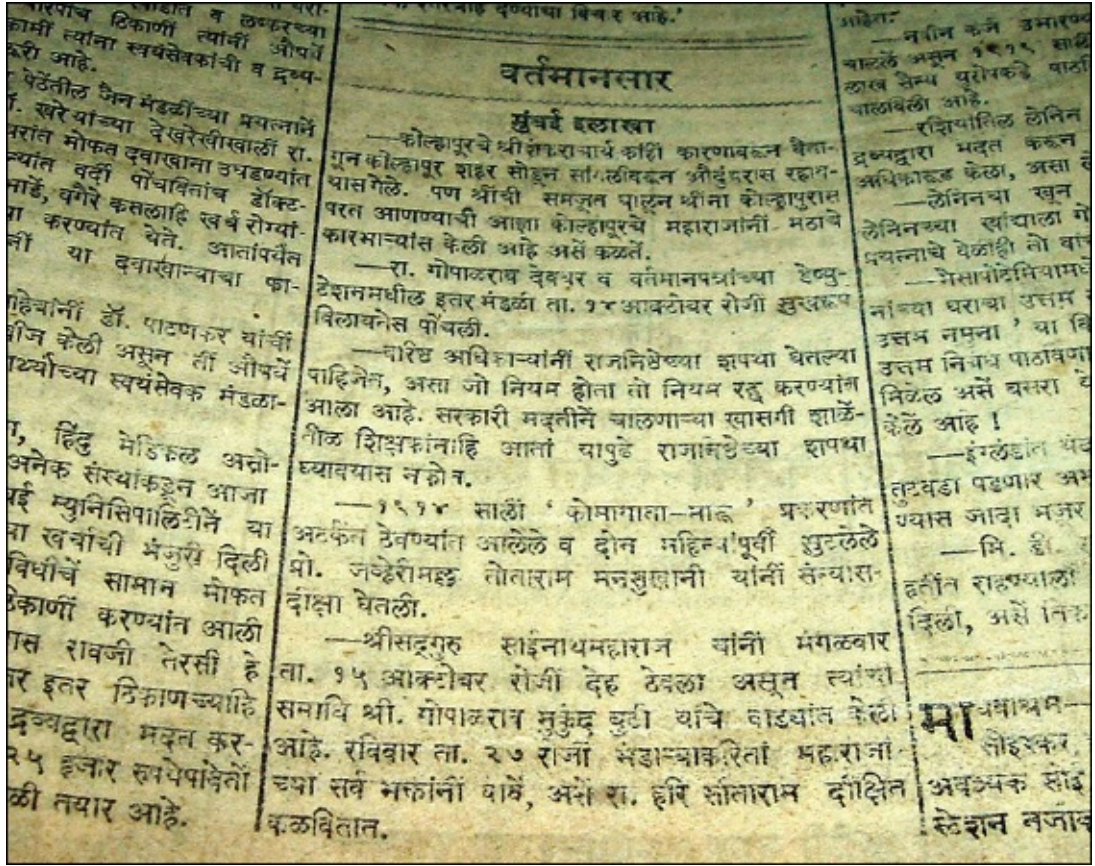 कामीं त्यांना स्वयंसेवकांची व द्रव्य-
आहे.
पेठेंतील जैन मंडळींच्या प्रयत्नानें
खरे यांच्या देखरेखीखालीं रा.
मोफत दवाखाना उघडण्यांत
वर्दी पोंचवितांच डॉक्ट-
वगैरे कसलाहि खर्च रोग्यां-
करण्यांत येते. आतांपर्यंत
या दवाखान्याचा फा-
डॉ. पाटणकर यांचीं
केली असून तीं औषधें
स्वयंसेवक मंडळा-
हिंदु मेडिकल असो-
अनेक संस्थांकडून आजा
म्युनिसिपालिटीनें या
खर्चाची मंजुरी दिली
सामान मोफत
करण्यांत आली
रावजी तेरसी हे
इतर ठिकाणच्याहि
द्रव्यद्वारा मदत कर-
२५ हजार रुपयेपावेतों
तयार आहे.
देण्याचा विचार आहे.'
वर्तमानसार
मुंबई इलाखा
—कोल्हापूरचे श्रीशंकराचार्य कांहीं कारणावरून वैता-
गून कोल्हापूर शहर सोडून सांगलीवरून औदुंबरास रहाव-
यास गेले. पण श्रींची समजूत घालून श्रींना कोल्हापुरास
परत आणण्याची आज्ञा कोल्हापूरचे महाराजांनीं मठाचे
कारभाऱ्यांस केली आहे असें कळतें.
—रा. गोपाळराव देवधर व वर्तमानपत्रांच्या डेप्यु-
टेशनमधील इतर मंडळी ता. १४ आक्टोबर रोजीं सुखरूप
विलायतेस पोंचली.
—वरिष्ठ अधिकाऱ्यांनीं राजनिष्ठेच्या शपथा घेतल्या
पाहिजेत, असा जो नियम होता तो नियम रद्द करण्यांत
आला आहे. सरकारी मदतीनें चालणाऱ्या खासगी शाळें-
तील शिक्षकांनाहि आतां यापुढें राजनिष्ठेच्या शपथा
घ्यावयास नकोत.
—१९१४ सालीं ' कोमागाता-मारू ' प्रकरणांत
अटकेंत ठेवण्यांत आलेले व दोन महिन्यांपूर्वी सुटलेले
प्रो. जव्हेरीमल्ल तोताराम मनसुखानी यांनीं संन्यास-
दीक्षा घेतली.
—श्रीसद्गुरु साईनाथमहाराज यांनीं मंगळवार
ता. १५ आक्टोबर रोजीं देह ठेवला असून त्यांची
समाधि श्री. गोपाळराव मुकुंद बुटी यांचे वाड्यांत केली
आहे. रविवार ता. २७ रोजीं भंडाऱ्याकरितां महाराजां-
च्या सर्व भक्तांनीं यावें, असें रा. हरि सीताराम दीक्षित
कळवितात.
आहेत.
—नवीन कर्ज
असून १९१९
लाख सैन्य यूरोपकडे
चालविली आहे.
—रशियांतिल लेनिन
द्रव्यद्वारा मदत करून
केला, असा
—लेनिनचा खून
लेनिनच्या खांद्याला
वेळींही तो
घराचा उत्तम
उत्तम नमुना ' या
उत्तम निबंध
मिळेल असें बसरा
केलें आहे !
—इंग्लंडांत
तुटवडा पडणार
ण्यास जादा मजूर
—मि. डी.
राहण्याला
दिली, असें
अवश्यक
स्टेशन